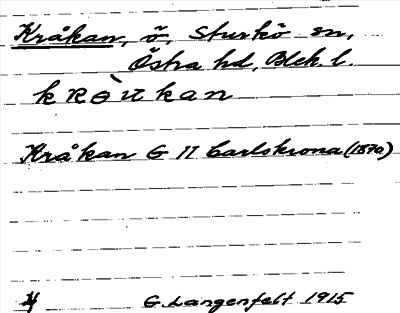 Kråkan, ö, Sturkö sn,
Östra hd, Blek. l.
Kråkan G II Carlskrona (1870)
G. Langenfelt 1915